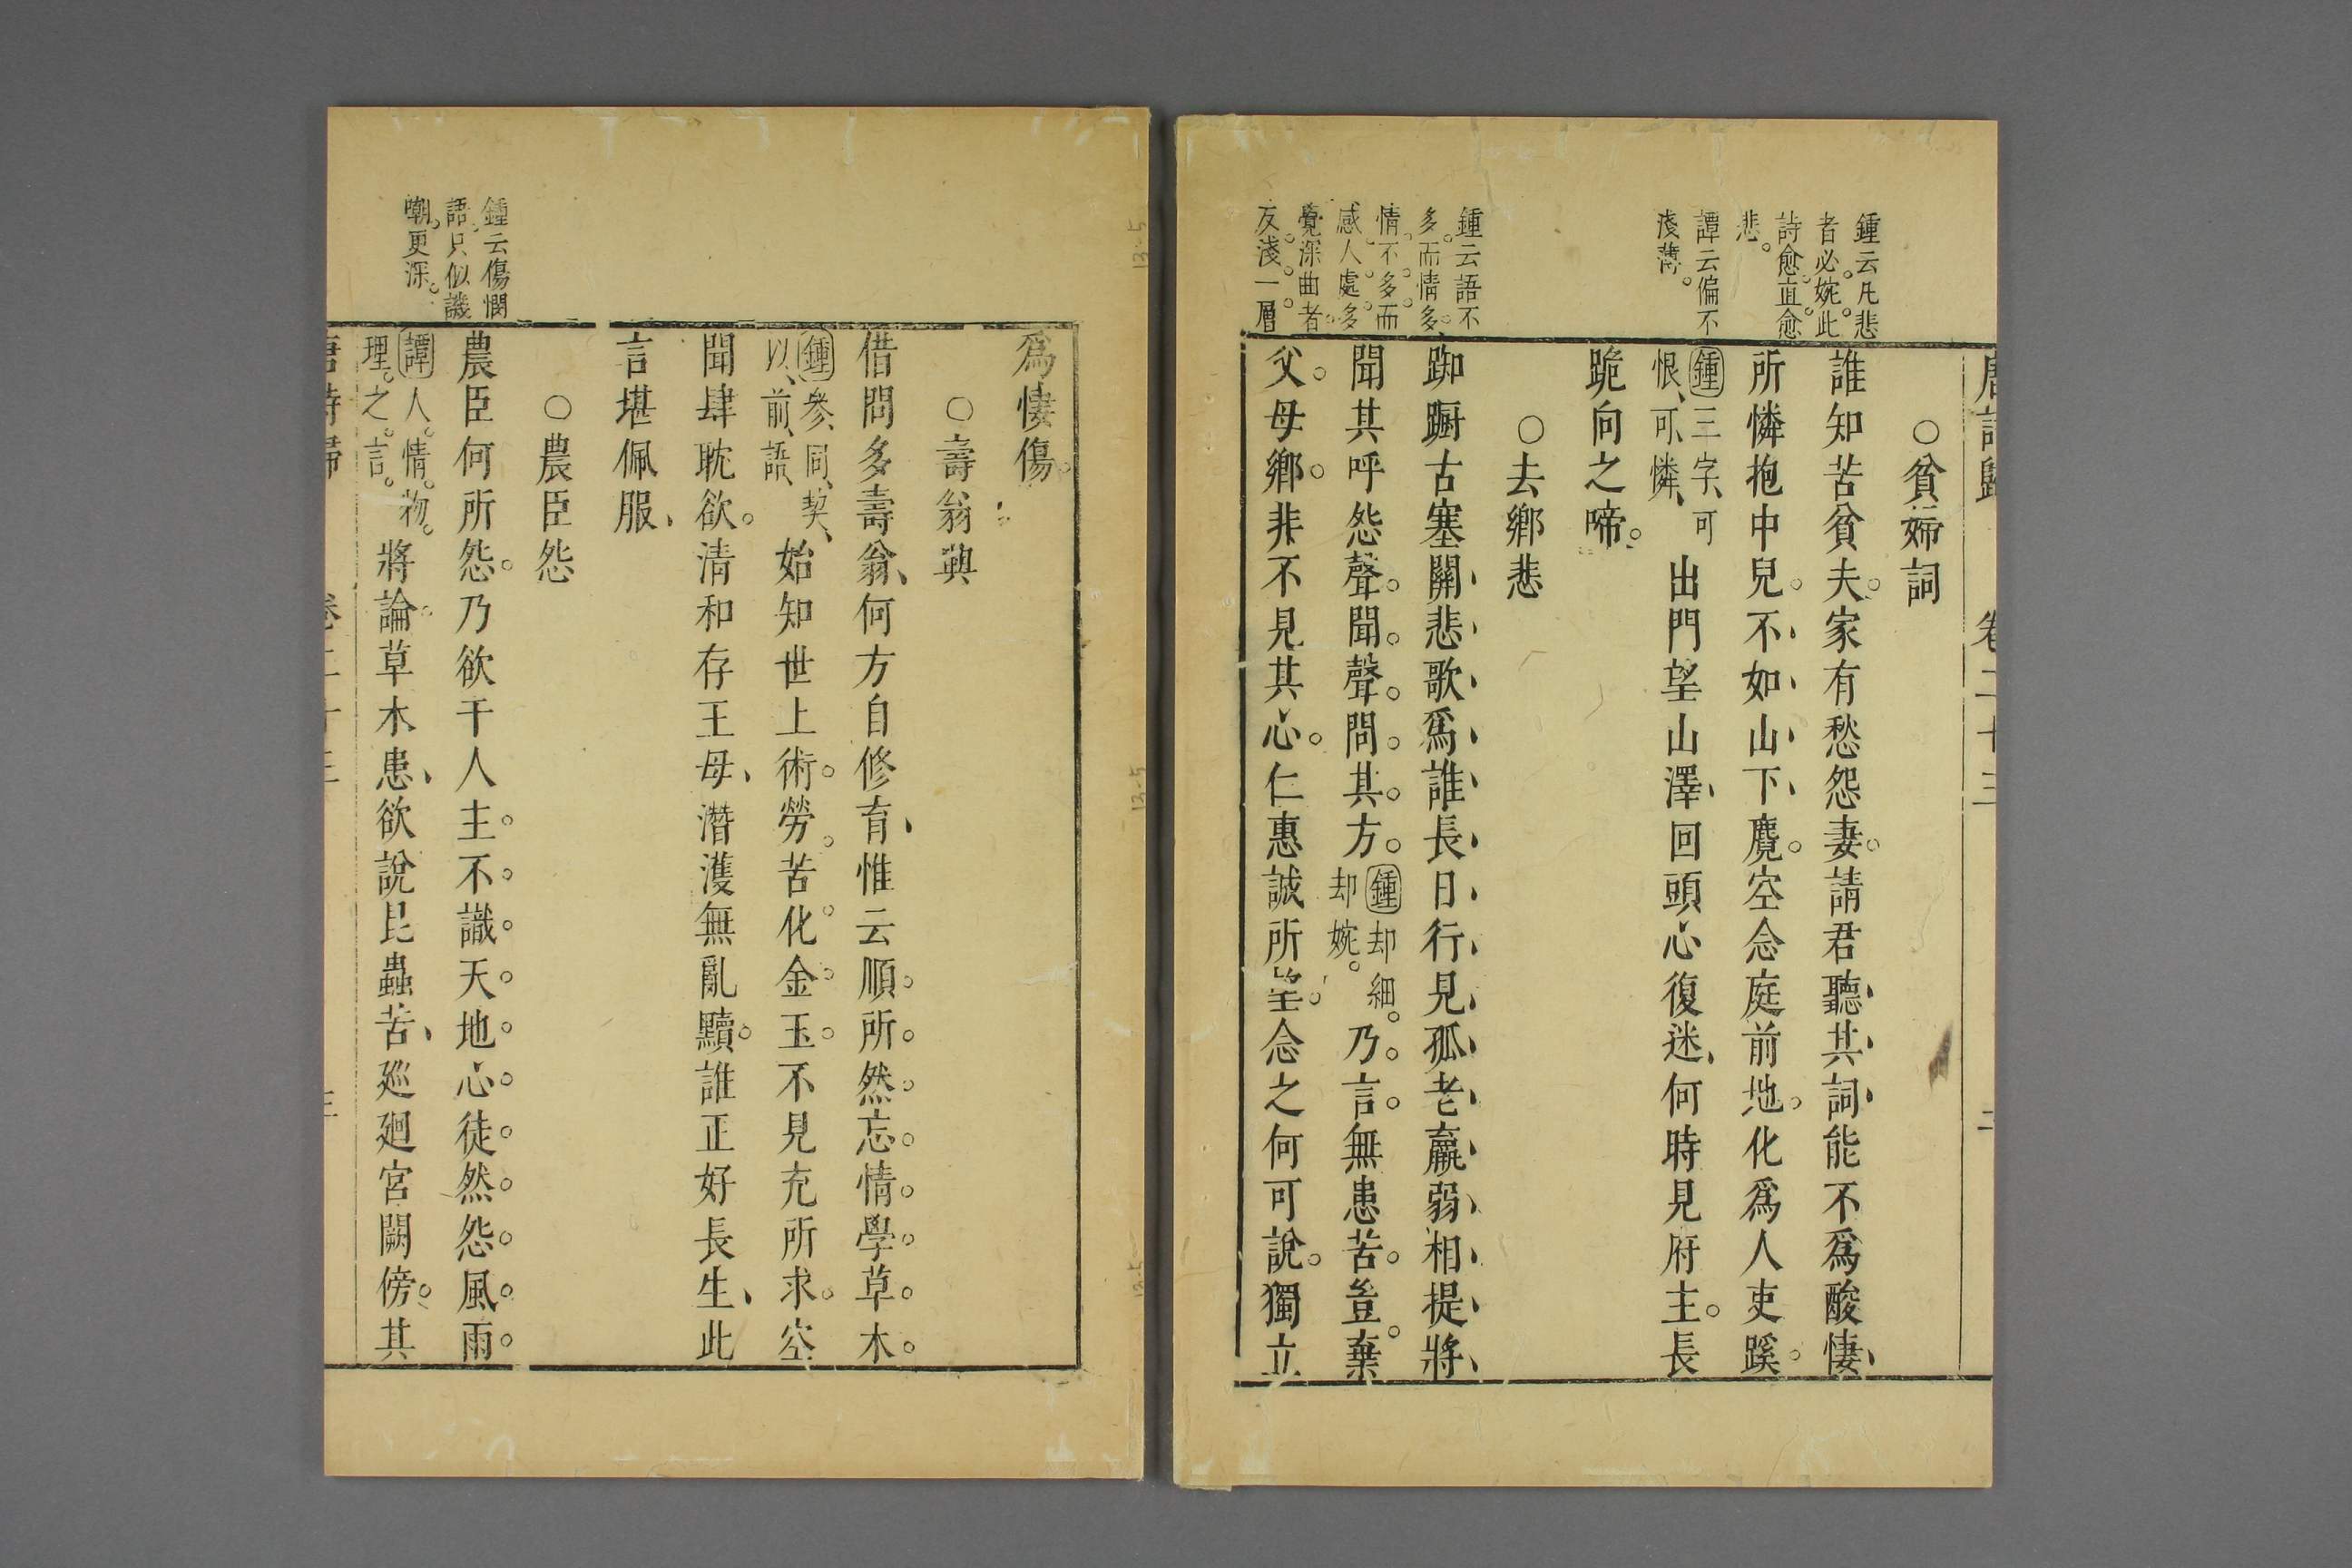 唐詩歸 卷二十三 二
○貧婦詞
鍾云凡悲
者必婉此
詩愈直愈
悲
誰知苦貧夫家有愁怨妻請君聽其詞能不爲酸悽
所憐抱中兒不如山下麑空念庭前地化爲人吏蹊
譚云偏不
淺薄
鍾三字可
恨可憐
出門望山澤回頭心復迷何時見府主長
跪向之啼
○去鄉悲
鍾云語不
多而情多
情不多而
感人處多
覺深曲者
反淺一層
踟蹰古塞關悲歌爲誰長日行見孤老羸弱相提將
聞其呼怨聲聞聲問其方
鍾却細
却婉
乃言無患苦豈棄
父母鄉非不見其心仁惠誠所望念之何可說獨立
爲悽傷
○壽翁興
借問多壽翁何方自修育惟云順所然忘情學草木
鍾參同契
以前語
始知世上術勞苦化金玉不見充所求空
聞肆耽欲清和存王母潛濩無亂黷誰正好長生此
言堪佩服
○農臣怨
鍾云傷憫
語只似譏
嘲更深
農臣何所怨乃欲干人主不識天地心徒然怨風雨
譚人情物
理之言
將論草木患欲說昆蟲苦廵廻宮闕傍其
唐詩歸 卷二十三 三